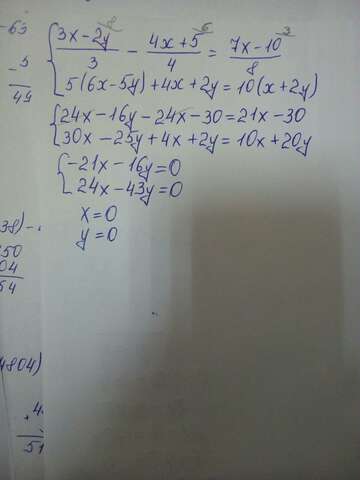 -63
-5
49
8 6 3
{ (3x-2y)/3 - (4x+5)/4 = (7x-10)/8
5(6x-5y)+4x+2y=10(x+2y)
{ 24x-16y-24x-30=21x-30
30x-25y+4x+2y=10x+20y
{ -21x-16y=0
24x-43y=0
x=0
y=0
38)-
50
04
54
4804)
+4
51